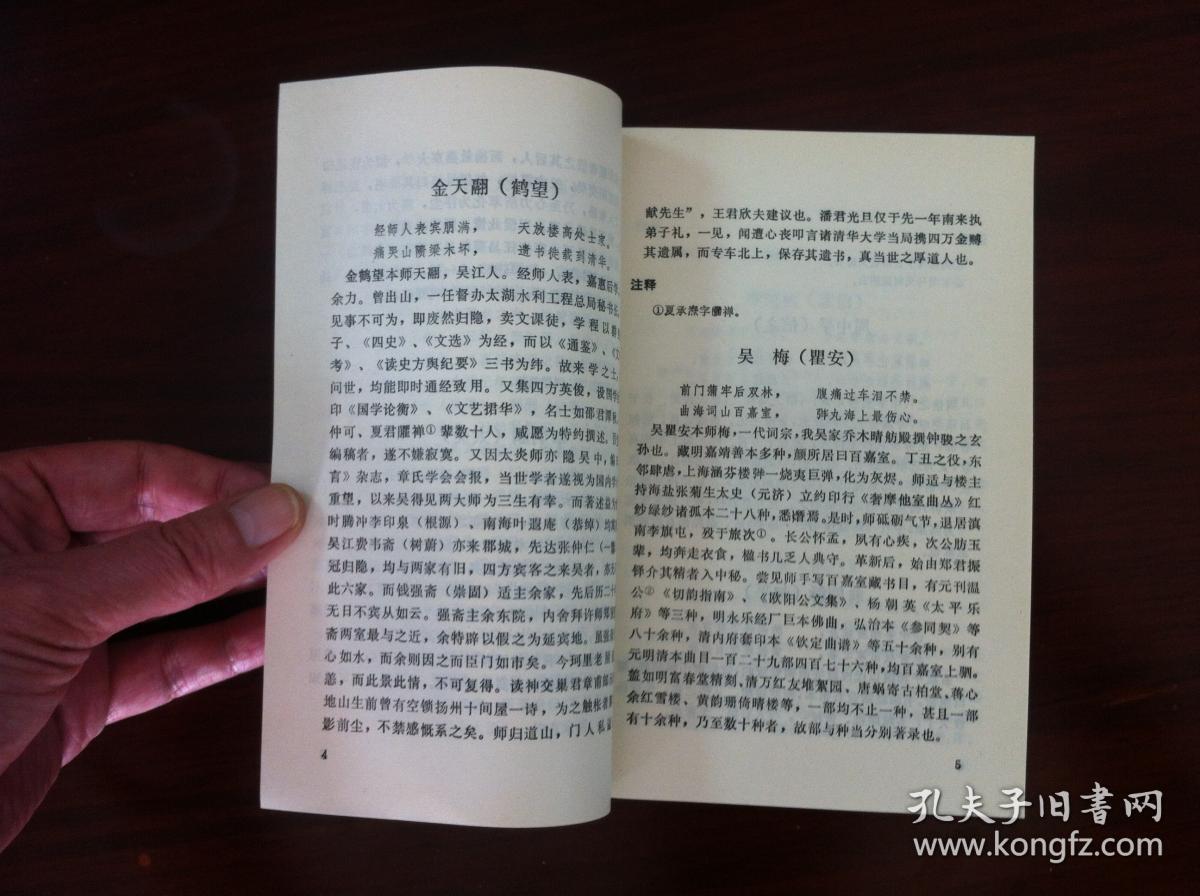 金天翮（鹤望）
经师人表宾朋满，　天放楼高处士家。
痛哭山颓梁木坏，　遗书徒载到清华。
金鹤望本师天翮，吴江人。经师人表，嘉惠后学，
余力。曾出山，一任督办太湖水利工程总局秘书长，
见事不可为，即废然归隐，卖文课徒，学程以
子、《四史》、《文选》为经，而以《通鉴》、《
考》、《读史方舆纪要》三书为纬。故来学之士，
问世，均能即时通经致用。又集四方英俊，设国学
印《国学论衡》、《文艺捃华》，名士如邵君潭秋、
仲可、夏君臞禅①辈数十人，咸愿为特约撰述。
编稿者，遂不嫌寂寞。又因太炎师亦隐吴中，编
言》杂志，章氏学会会报，当世学者遂视为国内学
重望，以来吴得见两大师为三生有幸。而著述益为
时腾冲李印泉（根源）、南海叶遐庵（恭绰）均寓
吴江费韦斋（树蔚）亦来郡城，先达张仲仁（一麐
冠归隐，均与两家有旧，四方宾客之来吴者，亦无
此六家。而钱强斋（崇固）适主余家，先后历二十
无日不宾从如云。强斋主余东院，内舍拜许师邻
斋两室最与之近，余特辟以假之为延宾地。虽强斋
心如水，而余则因之而臣门如市矣。今珂里老屋
恙，而此景此情，不可复得。读神交巢君章甫邮示
地山生前曾有空锁扬州十间屋一诗，为之触怅者
影前尘，不禁感慨系之矣。师归道山，门人私谥
4
献先生”，王君欣夫建议也。潘君光旦仅于先一年南来执
弟子礼，一见，闻遭心丧叩言诸清华大学当局携四万金赙
其遗属，而专车北上，保存其遗书，真当世之厚道人也。
注释
①夏承焘字臞禅。
吴　梅（瞿安）
前门蒲牢后双林，　腹痛过车泪不禁。
曲海词山百嘉室，　弹丸海上最伤心。
吴瞿安本师梅，一代词宗，我吴家乔木晴舫殿撰钟骏之玄
孙也。藏明嘉靖善本多种，颜所居曰百嘉室。丁丑之役，东
邻肆虐，上海涵芬楼弹一烧夷巨弹，化为灰烬。师适与楼主
持海盐张菊生太史（元济）立约印行《奢摩他室曲丛》红
鈔绿纱诸孤本二十八种，悉毁焉。是时，师砥砺气节，退居滇
南李旗屯，殁于旅次①。长公怀孟，夙有心疾，次公肪玉
辈，均奔走衣食，楹书几乏人典守。革新后，始由郑君振
铎介其精者入中秘。尝见师手写百嘉室藏书目，有元刊温
公②《切韵指南》、《欧阳公文集》、杨朝英《太平乐
府》等三种，明永乐经厂巨本佛曲，弘治本《参同契》等
八十余种，清内府套印本《钦定曲谱》等五十余种，别有
元明清本曲目一百二十九部四百七十六种，均百嘉室上驷。
盖如明富春堂精刻、清万红友堆絮园、唐蜗寄古柏堂、蒋心
余红雪楼、黄韵珊倚晴楼等，一部均不止一种，甚且一部
有十余种，乃至数十种者，故部与种当分别著录也。
5
孔夫子旧书网
www.kongfz.com